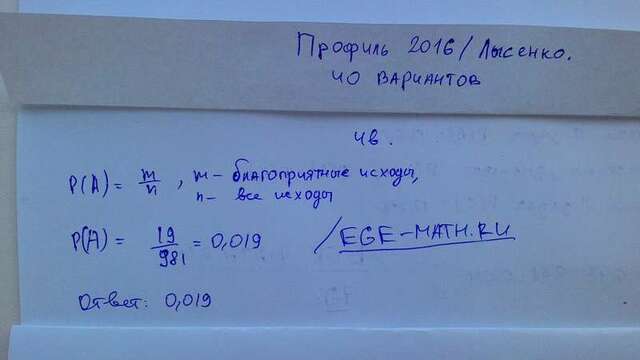 Профиль 2016/Лысенко.
40 вариантов
4в.
P(A) = m/n, m – благоприятные исходы,
n – все исходы
P(A) = 19/981 = 0,019 /EGE-MATH.RU
Ответ: 0,019